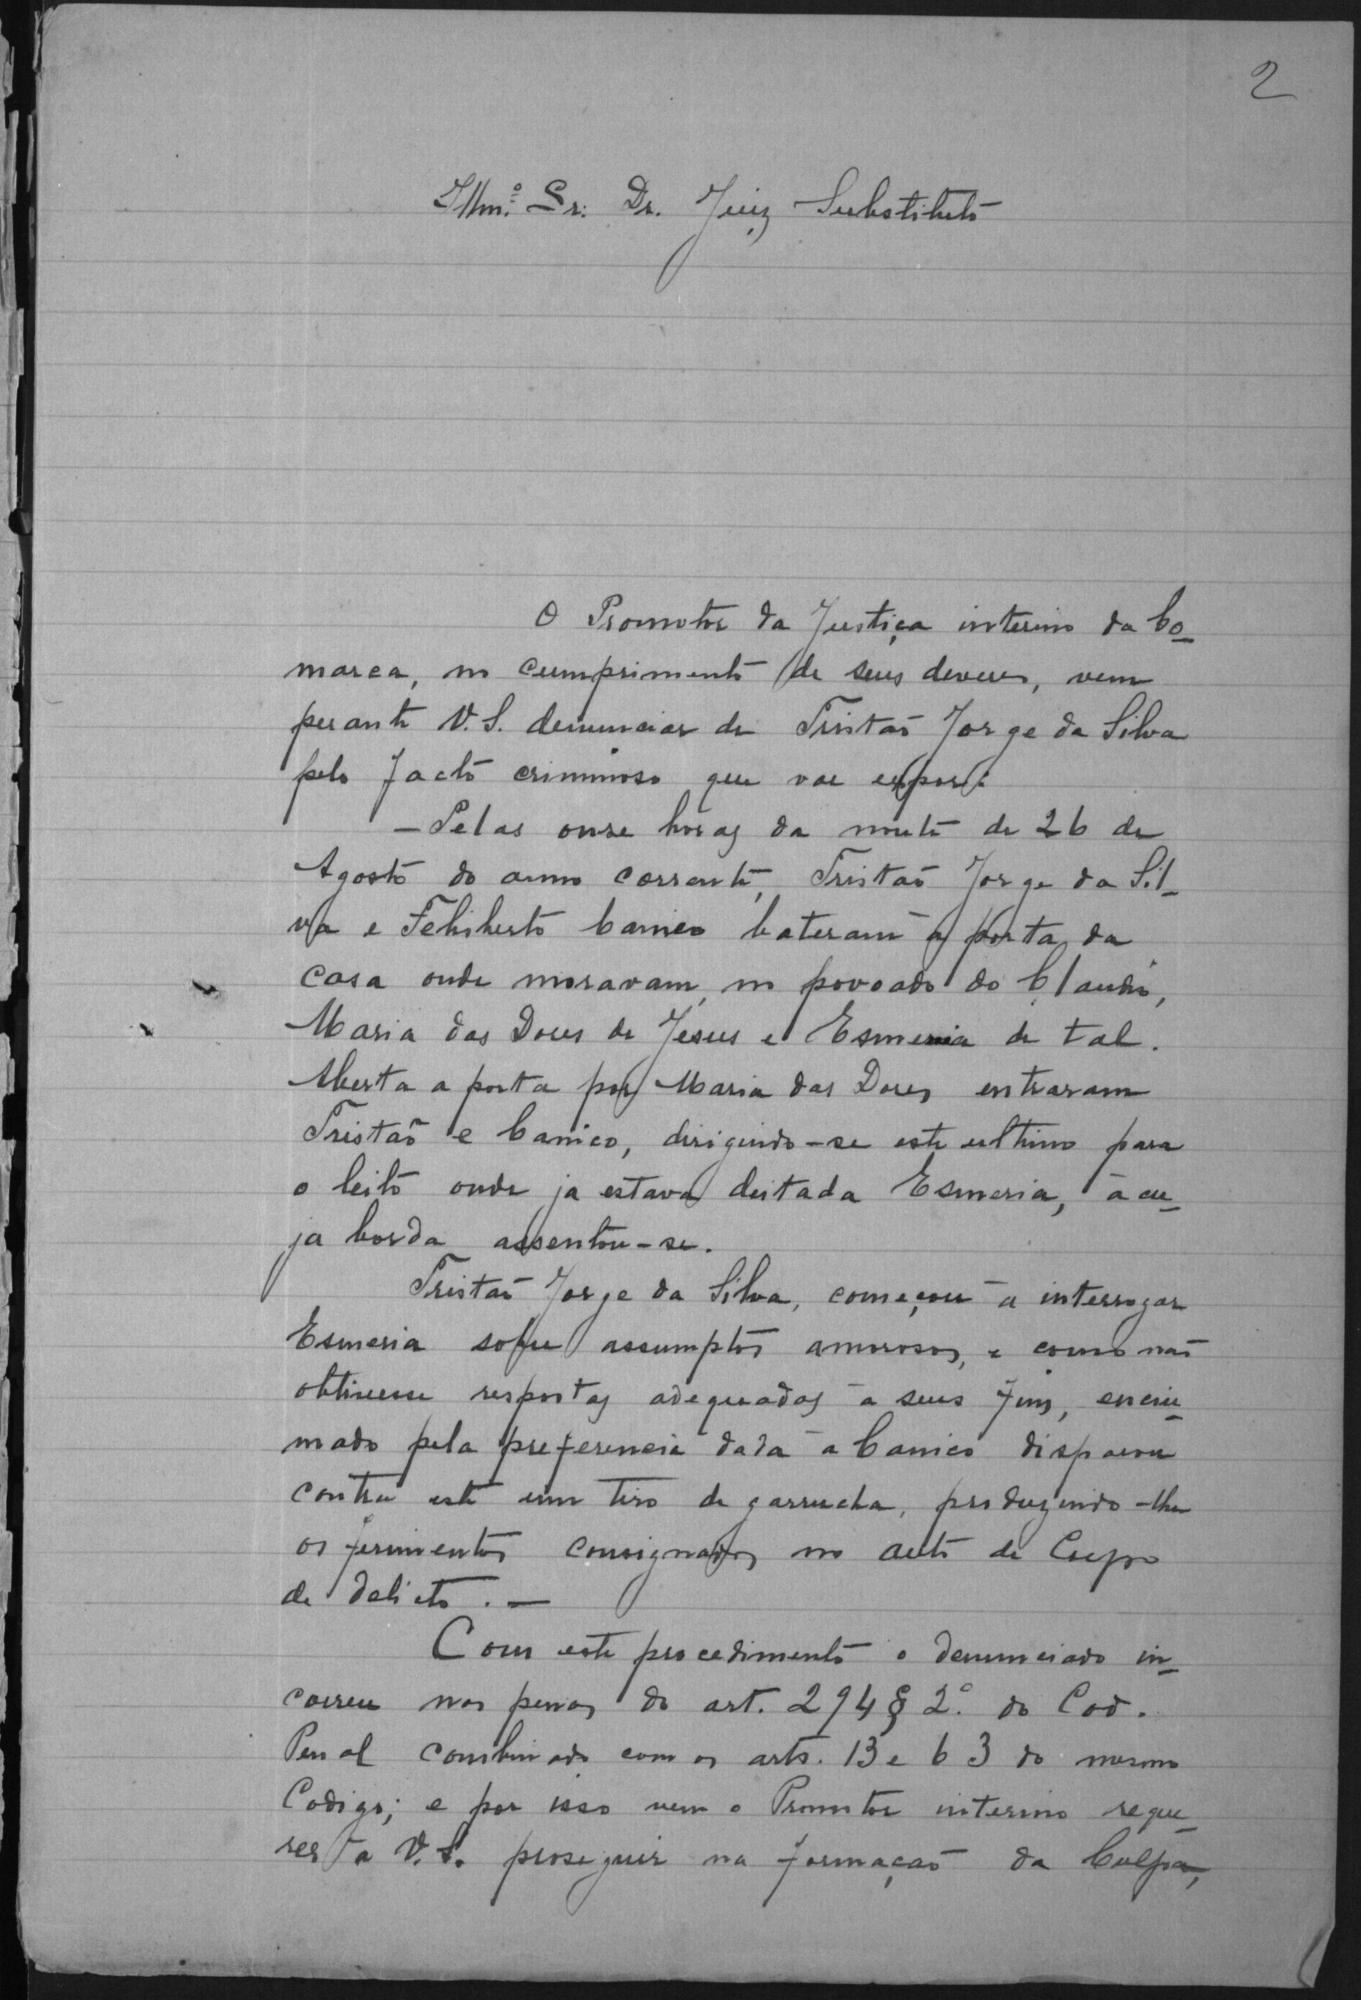 2
Illm.º Sr. Dr. Juiz Substituto
O Promotor da Justiça interino da Co-
marca, no cumprimento de seus deveres, vem
perante V. S. denunciar de Tristão Jorge da Silva
pelo facto criminoso que vae expor:
— Pelas onze horas da noute de 26 de
Agosto do anno corrente, Tristão Jorge da Sil-
va e Feliberto Canico bateram á porta da
casa onde moravam, no povoado do Claudio,
Maria das Dores de Jesus e Esmeria de tal.
Aberta a porta por Maria das Dores, entraram
Tristão e Canico, dirigindo-se este ultimo para
o leito onde ja estava deitada Esmeria, á cu-
ja borda assentou-se.
Tristão Jorge da Silva, começou a interrogar
Esmeria sobre assumptos amorosos, e como não
obtivesse respostas adequadas a seus fins, enciu-
mado pela preferencia dada a Canico disparou
contra este um tiro de garrucha, produzindo-lhe
os ferimentos consignados no auto de Corpo
de delicto. —
Com este procedimento o denunciado in-
correu nas penas do art. 294 § 2º. do Cod.
Penal combinado com os arts. 13 e 63 do mesmo
Codigo; e por isso vem o Promotor interino reque-
rer a V. S. proseguir na formação da Culpa,